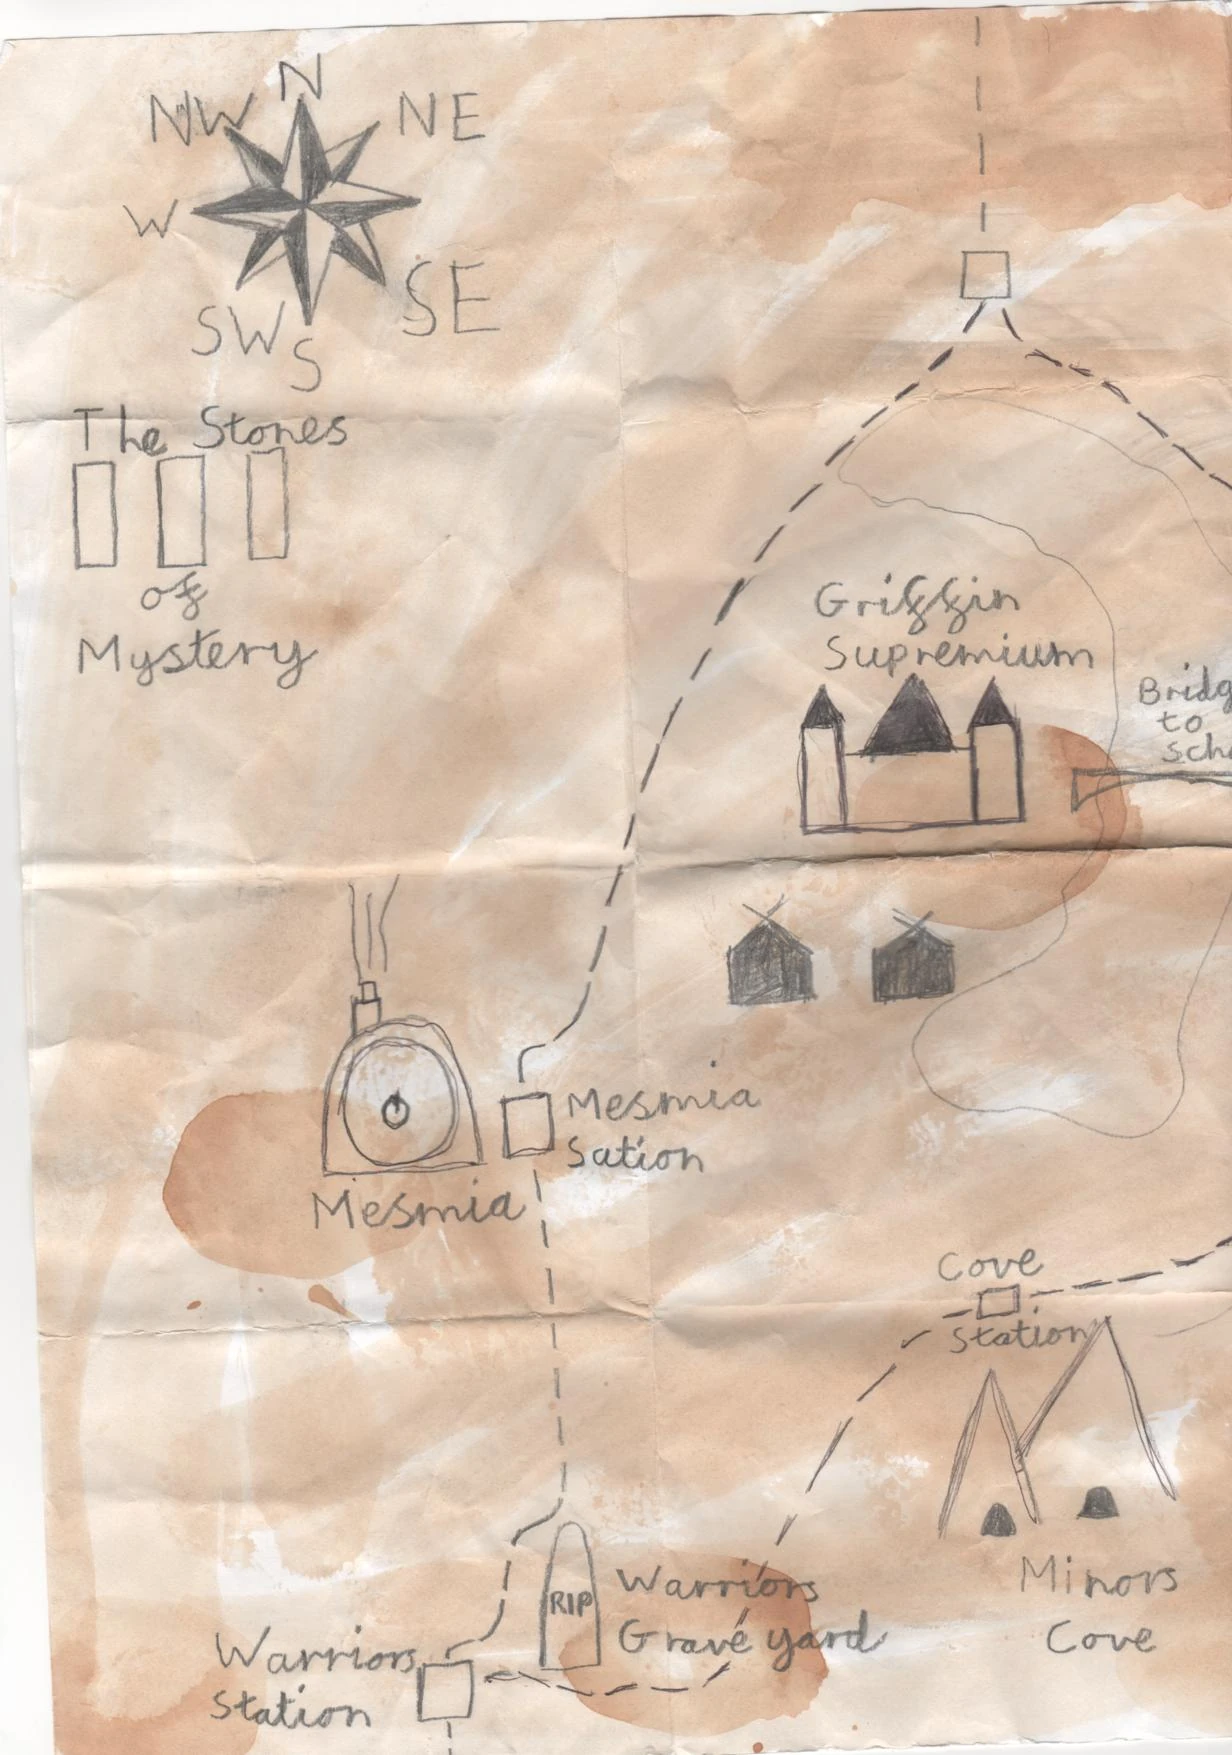 N
NW
NE
W
SE
SW
S
The Stones
of
Mystery
Griffin
Supremium
Bridg
to
Scho
Mesmia
Sation
Mesmia
Cove
Station
RIP
Warriors
Grave yard
Minors
Cove
Warriors
Station